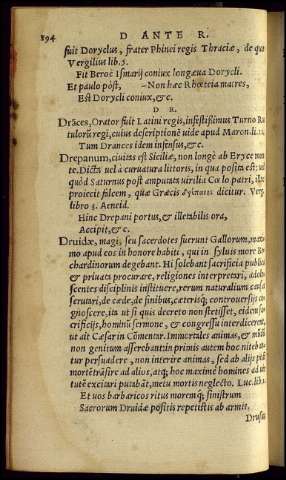 894 D ANTE R.
fuit Doryclus, frater Phinei regis Thraciæ, de quo
Vergilius lib.5.
Fit Beroë Ismarij coniux longæua Dorycli.
Et paulo pòst, –Non hæc Rhœteia matres,
Est Dorycli coniux, &c.
D R.
Drāces, Orator fuit Latini regis, infestißimus Turno Ru
tulorū regi, cuius descriptionē uide apud Maron. li.
Tum Drances idem infensus, &c.
Drepanum, ciuitas est Siciliæ, non longè ab Eryce mon
te. Dicta uel à curuatura littoris, in qua posita est: uel
quòd Saturnus post amputata uirilia Cœlo patri,
proiecit falcem, quæ Græcis dicitur. Verg.
libro 3. Aeneid.
Hinc Drepani portus, & illetabilis ora,
Accipit, &c.
Druidæ, magi, seu sacerdotes fuerunt Gallorum,
mo apud eos in honore habiti, qui in syluis more Bo
chardinorum degebant. Hi solebant sacrificia publica
& priuata procurare, religiones interpretri, adole-
scentes disciplinis instituere, rerum naturalium
scrutari, de cæde, de finibus, cæterisq́; controuersijs co
gnoscere, ita ut si quis decreto non stetisset, ei
crificijs, hominū sermone, & congressu interdicerent,
ut ait Cæsar in Cōmentar. Immortales animas, &
non genitum asserebant: in primis autem hoc niteban
tur persuadere, non interire animas, sed ab alijs post
mortē trāsire ad alios, atq; hoc maximè homines ad uir
tutē excitari putabāt, metu mortis neglecto. Luc. lib.1.
Et uos barbaricos ritus moremq́; sinistrum
Sacrorum Druidæ positis repetistis ab armis.
Drusus